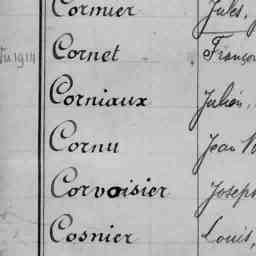 Cormier Jules,
Cornet
Corniaux Julien,
Cornu Jean
Corvoisier Joseph
Cosnier Louis,